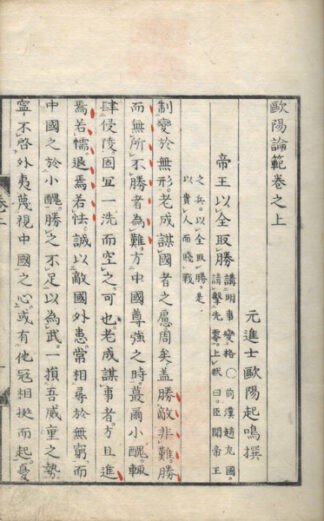 歐陽論範卷之上
元進士歐陽起鳴撰
帝王以全取勝
講明事變格○前漢趙充國。
請擊先零。上狀曰。臣聞帝王
之兵。以全取勝。是
以貴人而賤戰
制變於無形。老成謀國者之慮周矣。蓋勝敵非難。勝
而無所不勝者為難。方中國尊強之時。蕞爾小醜。輒
肆侵陵。固宜一洗而空之。可也。老成謀事者。方且進
焉若懦。退焉若怯。誠以敵國外患。常相尋於無窮。而
中國之於小醜。勝之不足以為武。一損吾威重之勢。
寧不啓外夷蔑視中國之心。或有他寇相挻而起。憂